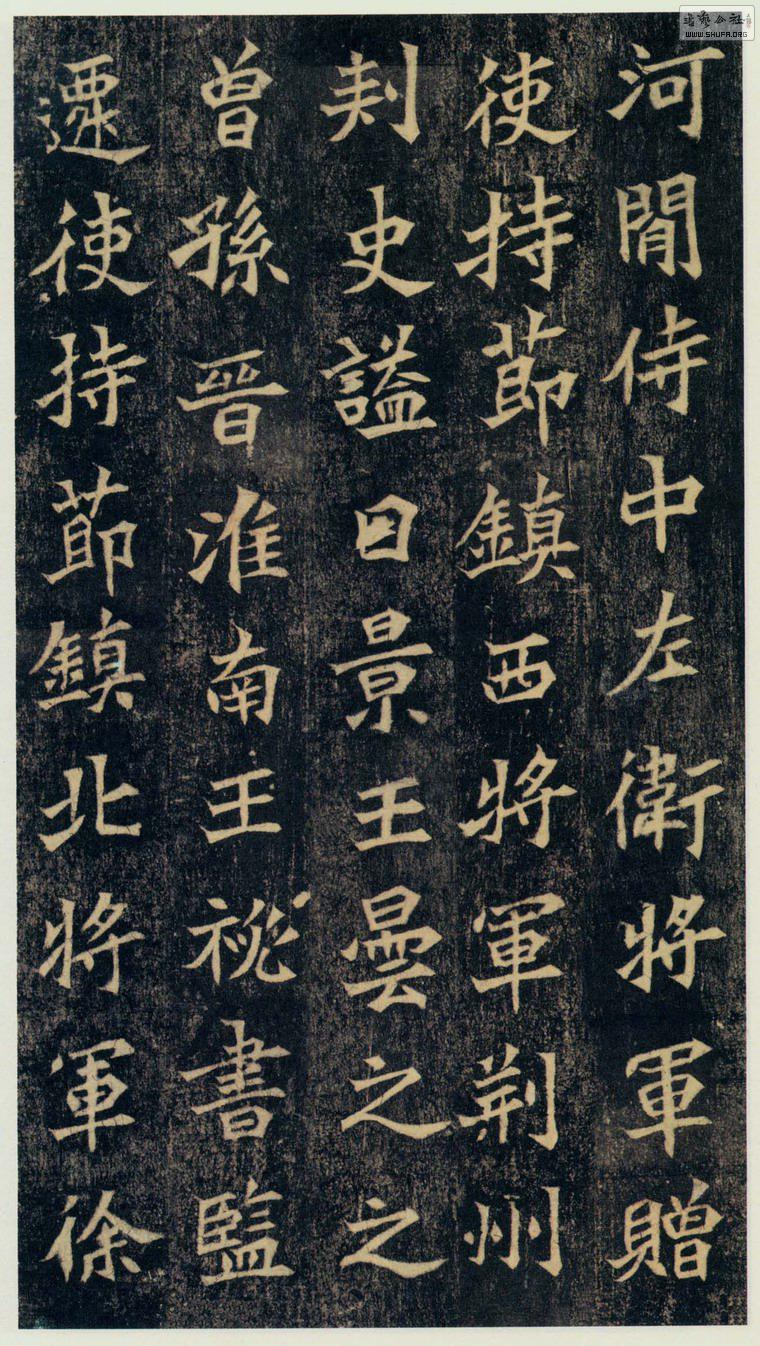 河間侍中左衛將軍贈
使持節鎮西將軍荊州
刾史謚曰景王曇之之
曾孫晉淮南王祕書監
遷使持節鎮北將軍徐
WWW.SHUFA.ORG